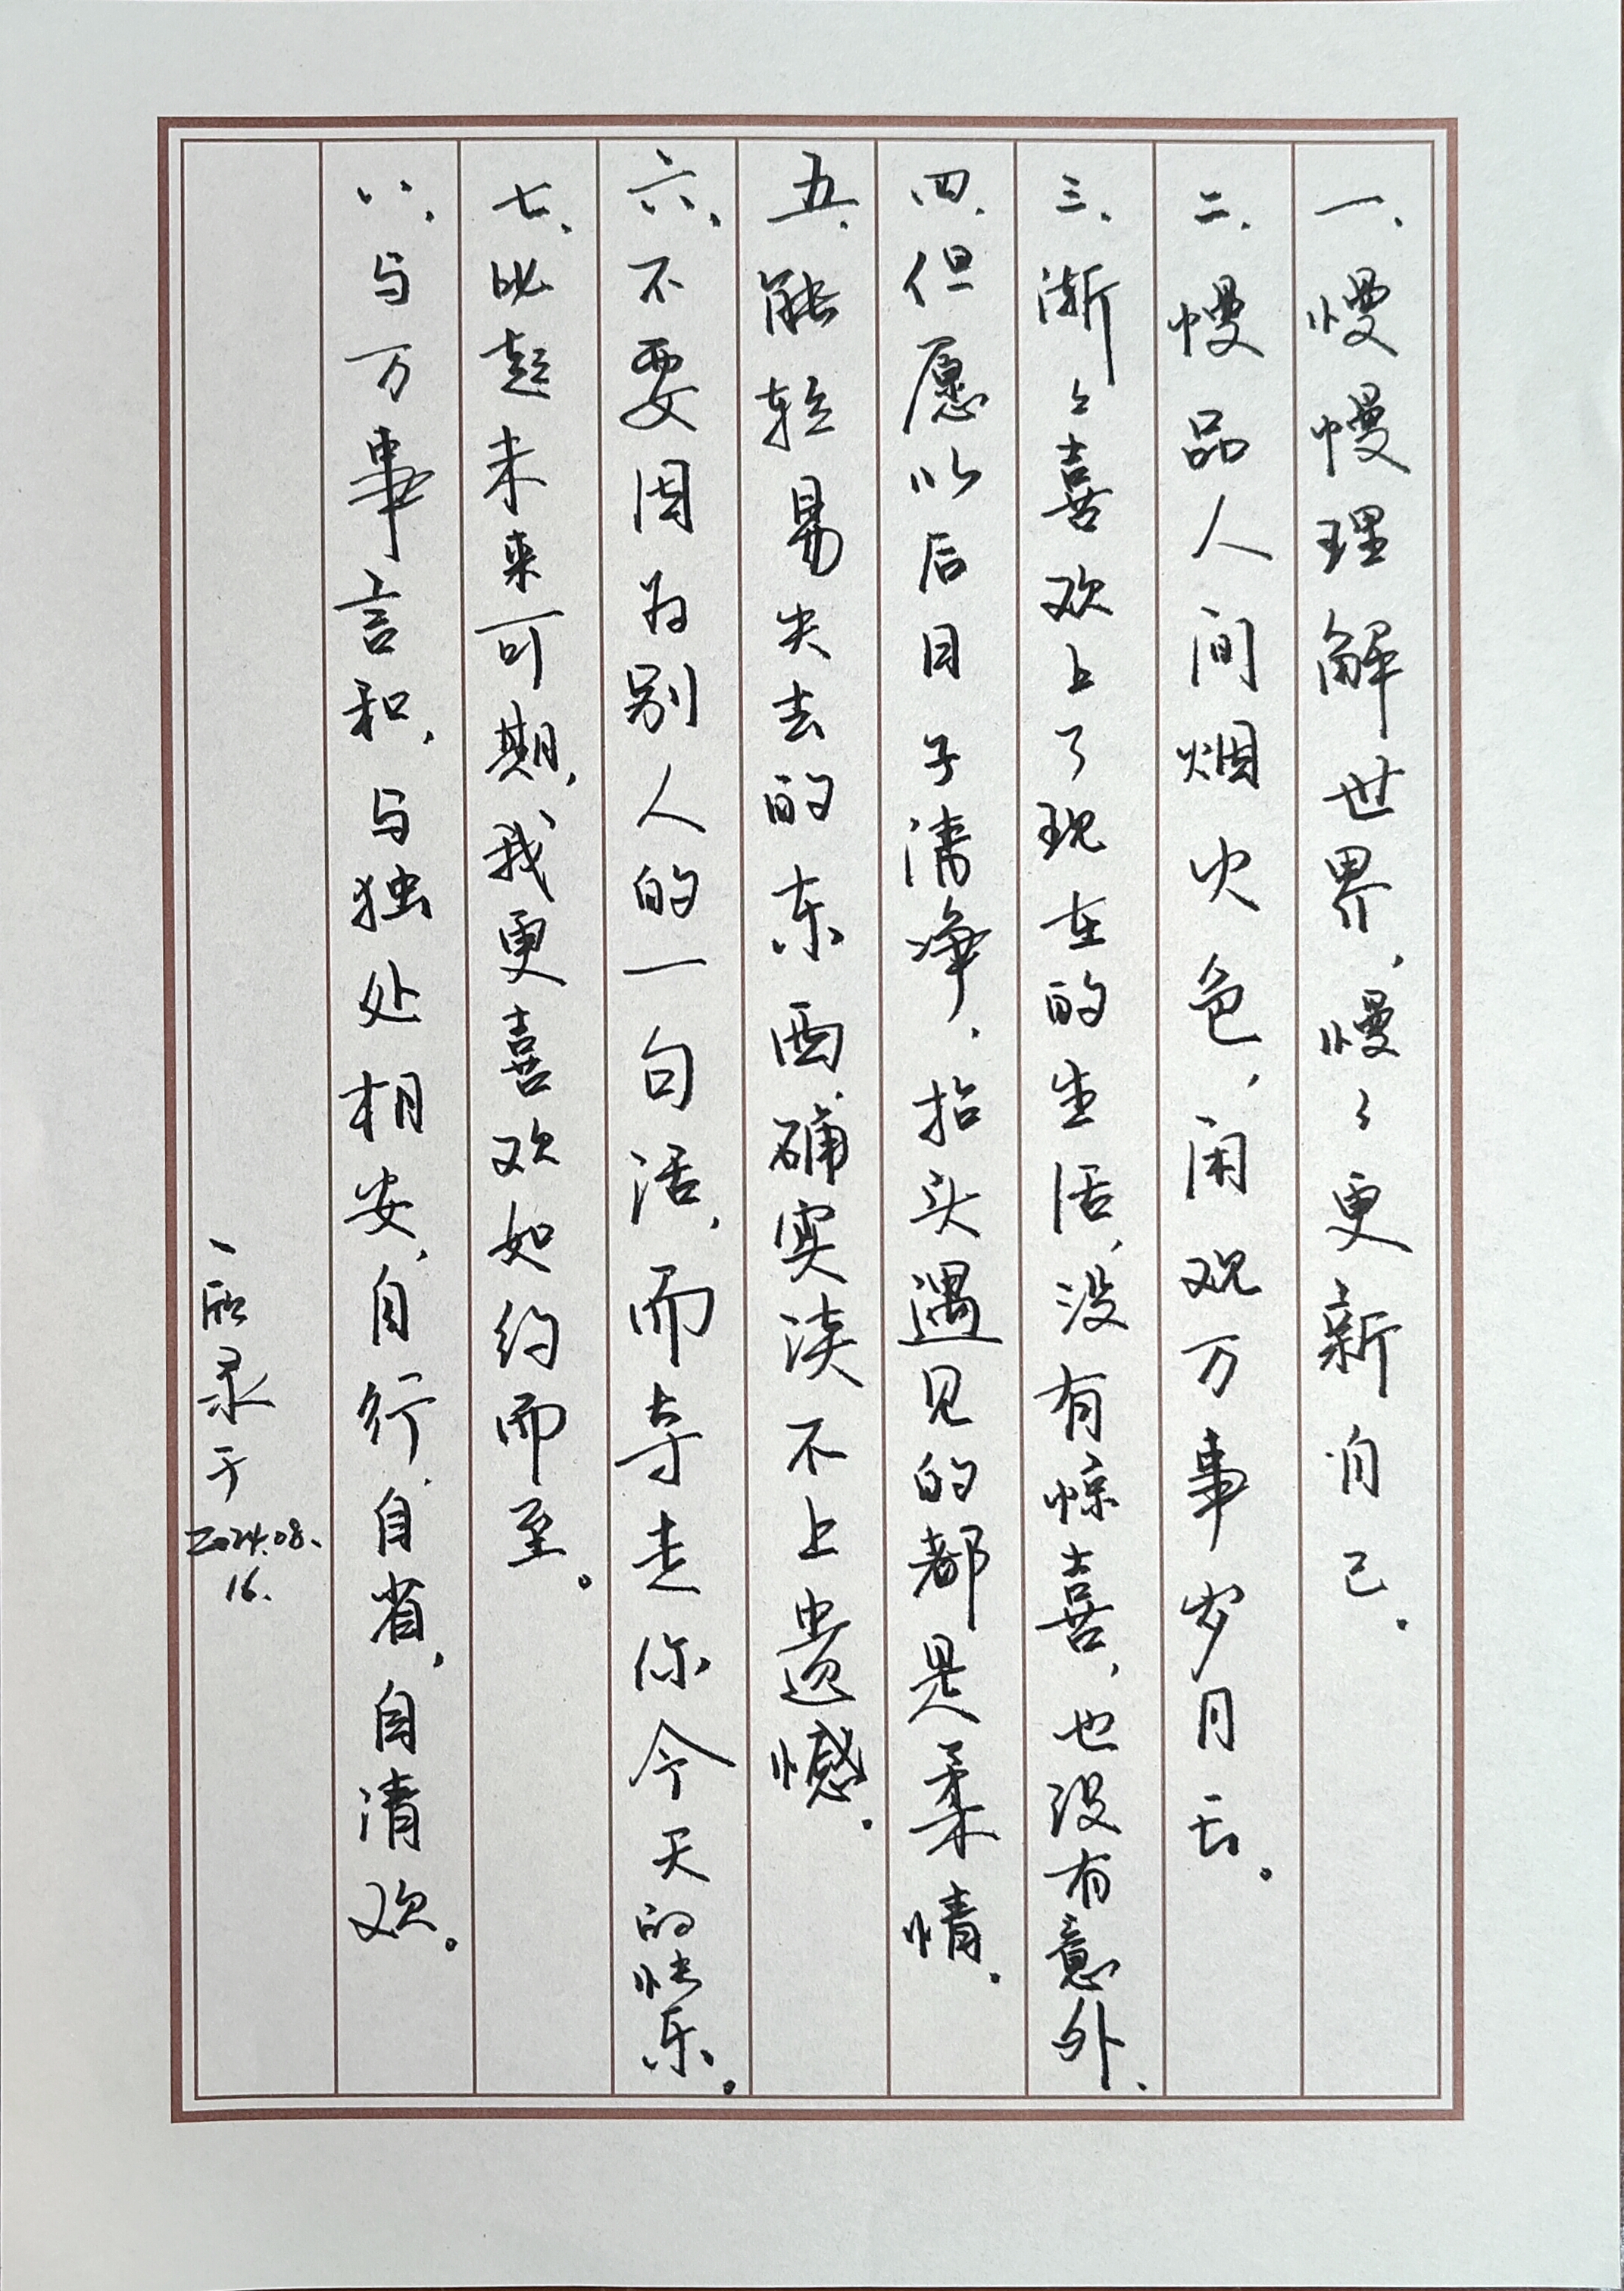 一、慢慢理解世界，慢々更新自己。
二、慢品人间烟火色，闲观万事岁月长。
三、渐々喜欢上了现在的生活，没有惊喜，也没有意外、
四、但愿以后日子清净，抬头遇见的都是柔情。
五、能轻易失去的东西，确实谈不上遗憾。
六、不要因为别人的一句话，而夺走你今天的快乐。
七、比起未来可期，我更喜欢如约而至。
八、与万事言和，与独处相安，自行，自省，自清欢。
录于
2024.08.
16.